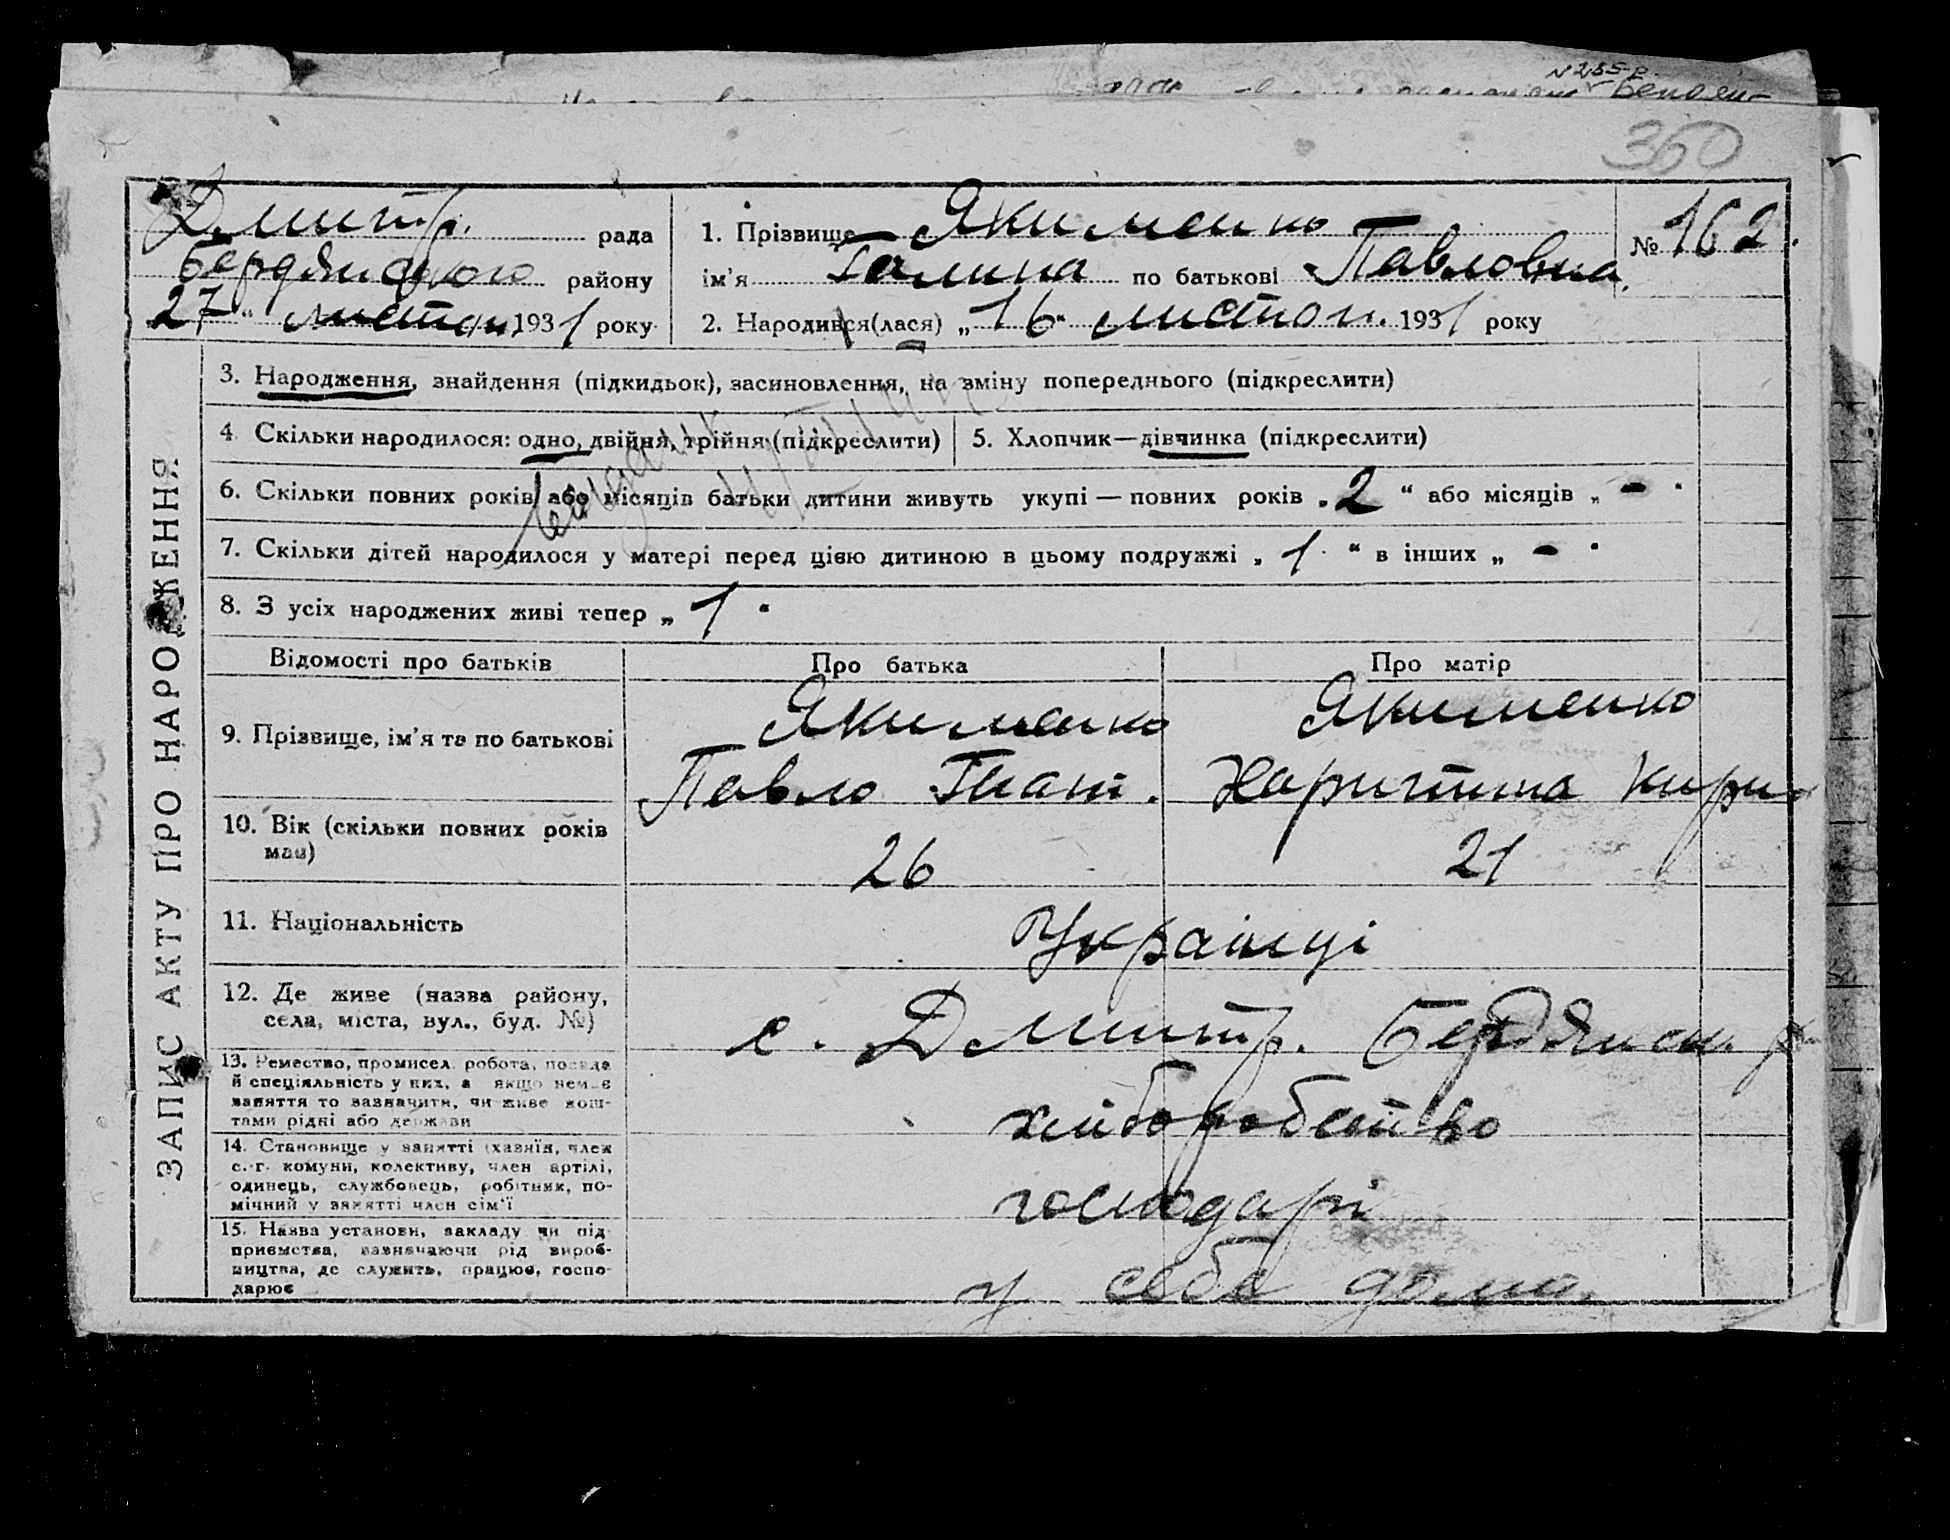 350
Дмитр. рада
Бердянського району
27 " листоп. 1931 року
1. Прізвище Якименко
ім'я Галина по батькові Павловна
№ 162.
2. Народився(лася) „ 16 " листоп. 1931 року
ЗАПИС АКТУ ПРО НАРОДЖЕННЯ
3. Народження, знайдення (підкидьок), засиновлення, на зміну попереднього (підкреслити)
4. Скільки народилося: одно, двійня, трійня (підкреслити)
5. Хлопчик—дівчинка (підкреслити)
6. Скільки повних років або місяців батьки дитини живуть укупі — повних років „ 2 " або місяців „ - "
7. Скільки дітей народилося у матері перед цією дитиною в цьому подружжі „ 1 " в інших „ - "
8. З усіх народжених живі тепер „ 1 "
Відомості про батьків
Про батька
Про матір
9. Прізвище, ім'я та по батькові
Якименко
Павло Гнат.
Якименко
Харистина Кири
10. Вік (скільки повних років має)
26
21
11. Національність
Українці
12. Де живе (назва району, села, міста, вул., буд. №)
с. Дмитр. Бердянськ. р
13. Ремество, промисел, робота, посада
й спеціяльність у них, а якщо немає
заняття то зазначити, чи живе кош-
тами рідні або держави
хліборобство
14. Становище у занятті (хазяїн, член
с.-г. комуни, колективу, член артілі,
одинець, службовець, робітник, по-
мічний у занятті член сім'ї
господарі
15. Назва установи, закладу чи під-
приємства, зазначаючи рід вироб-
ництва, де служить, працює, госпо-
дарює
у себе дома.